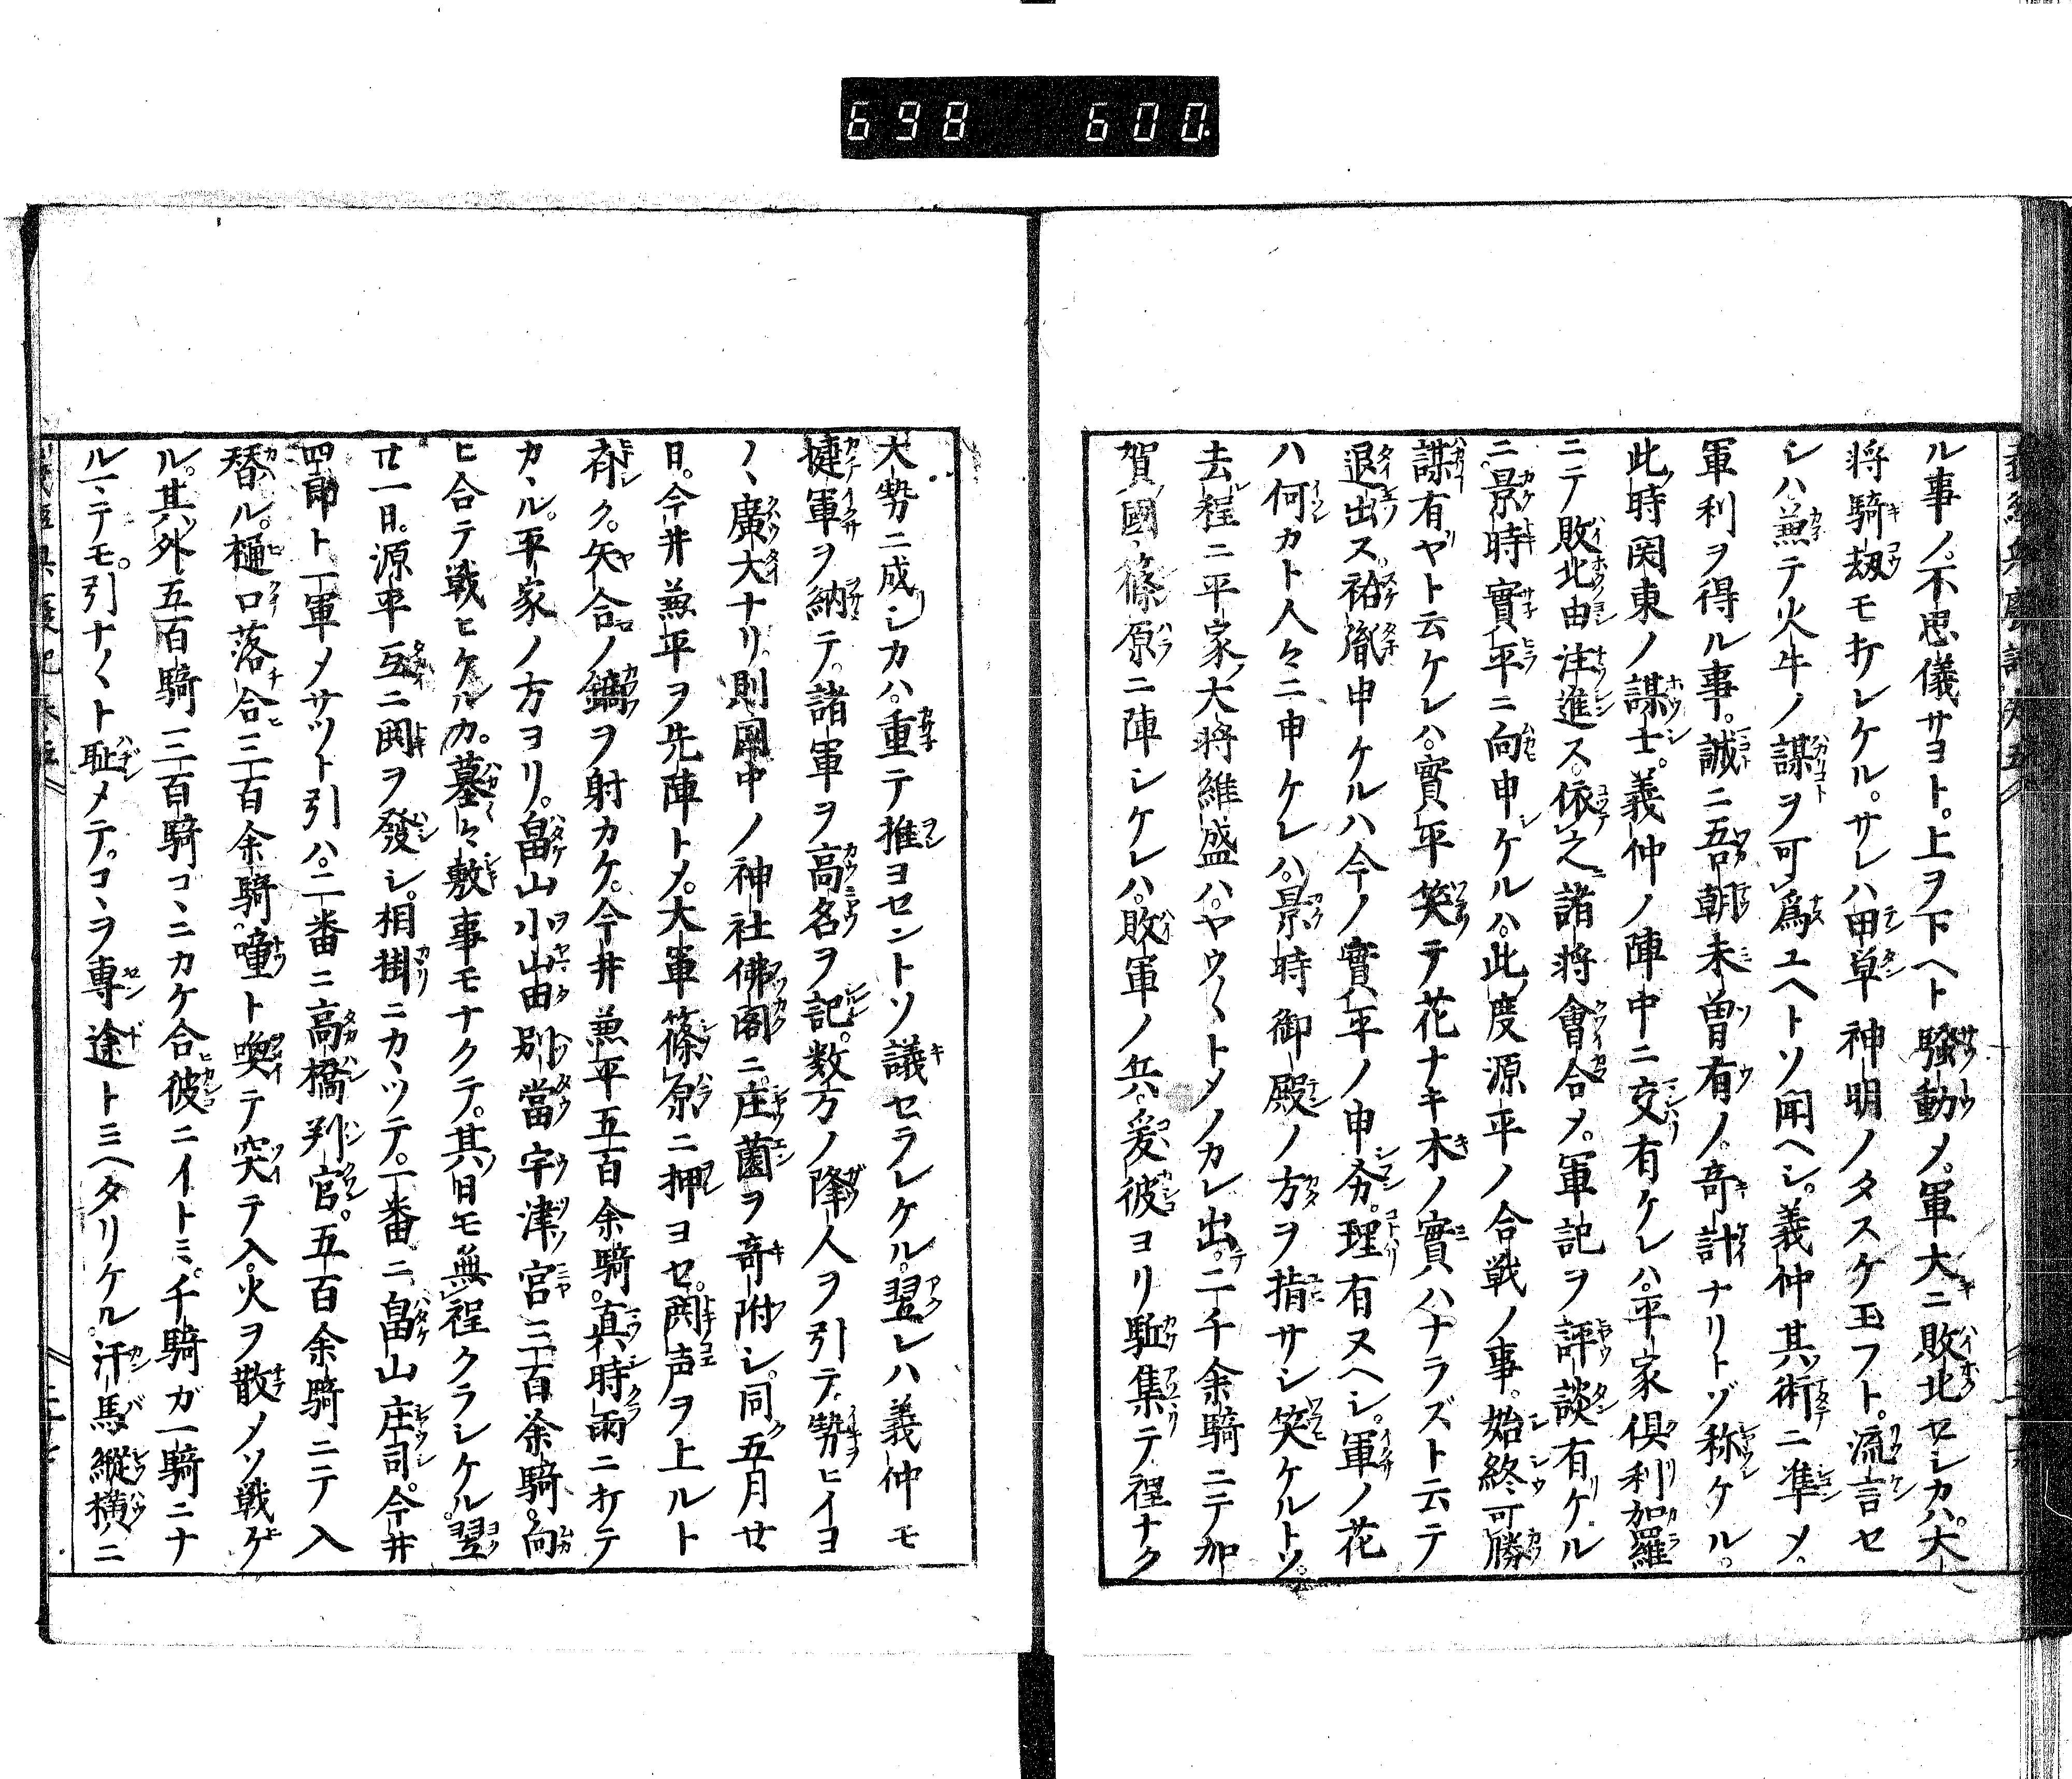 698 600.
ル事ノ。不思儀サヨト。上ヲ下ヘト騒動メ。軍大ニ敗北セシカハ。大
将騎劔モ打レケル。サレハ甲単神明ノタスケ玉フト。流言セ
シハ兼テ火牛ノ謀ヲ可為ユヘトソ聞ヘシ。義仲其術ニ準メ。
軍利ヲ得ル事。誠ニ吾朝未曽有ノ。奇計ナリトゾ称ケル。
此時関東ノ謀士。義仲ノ陣中ニ交有ケレハ。平家倶利加羅
ニテ敗北由注進ス。依之諸将會合メ。軍記ヲ評談有ケル
ニ。景時實平ニ向申ケルハ。此度源平ノ合戦ノ事。始終可勝
謀有ヤト云ケレハ。實平笑テ花ナキ木ノ實ハナラズト云テ
退出ス。祐胤申ケルハ今ノ實平ノ申分。理有ヌヘシ。軍ノ花
ハ何カト人々ニ申ケレハ。景時御殿ノ方ヲ指サシ笑ケルトソ。
去程ニ平家大将維盛ハ。ヤウ〱トメノカレ出。二千余騎ニテ加
賀國篠原ニ陣シケレハ。敗軍ノ兵。爰彼ヨリ駈集テ程ナク
大勢ニ成シカハ。重テ推ヨセントソ議セラレケル。翌レハ義仲モ
捷軍ヲ納テ。諸軍ヲ高名ヲ記。数方ノ降人ヲ引テ。勢ヒイヨ
〱廣大ナリ。則國中ノ神社佛閣ニ。庄薗ヲ寄附シ。同五月廿
日。今井兼平ヲ先陣トメ。大軍篠原ニ押ヨセ。鬨声ヲ上ルト
ク。矢合ノ鏑ヲ射カケ。今井兼平五百余騎。真時雨ニ打テ
カヽル。平家ノ方ヨリ。畠山小山田別當宇津宮三百余騎。向
ヒ合テ戦ヒケルカ。墓々敷事モナクテ。其日モ無程クラシケル。翌
廿一日。源平互ニ鬨ヲ發シ。相掛ニカヽツテ。一番ニ畠山庄司。今井
四郎ト一軍メサツト引ハ。二番ニ高橋判官。五百余騎ニテ入
替ル。樋口落合三百余騎。噇ト喚テ突テ入。火ヲ散メソ戦ケ
ル。其外五百騎三百騎コヽニカケ合彼ニイトミ。千騎ガ一騎ニナ
ルマテモ。引ナ〱ト耻メテ。コヽヲ専途トミヘタリケル。汗馬縦横ニ